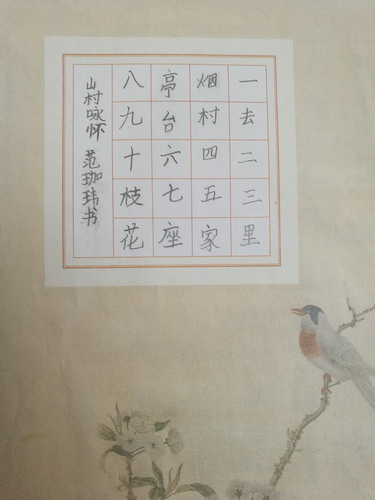 一去二三里
烟村四五家
亭台六七座
八九十枝花
山村咏怀 范珈玮书